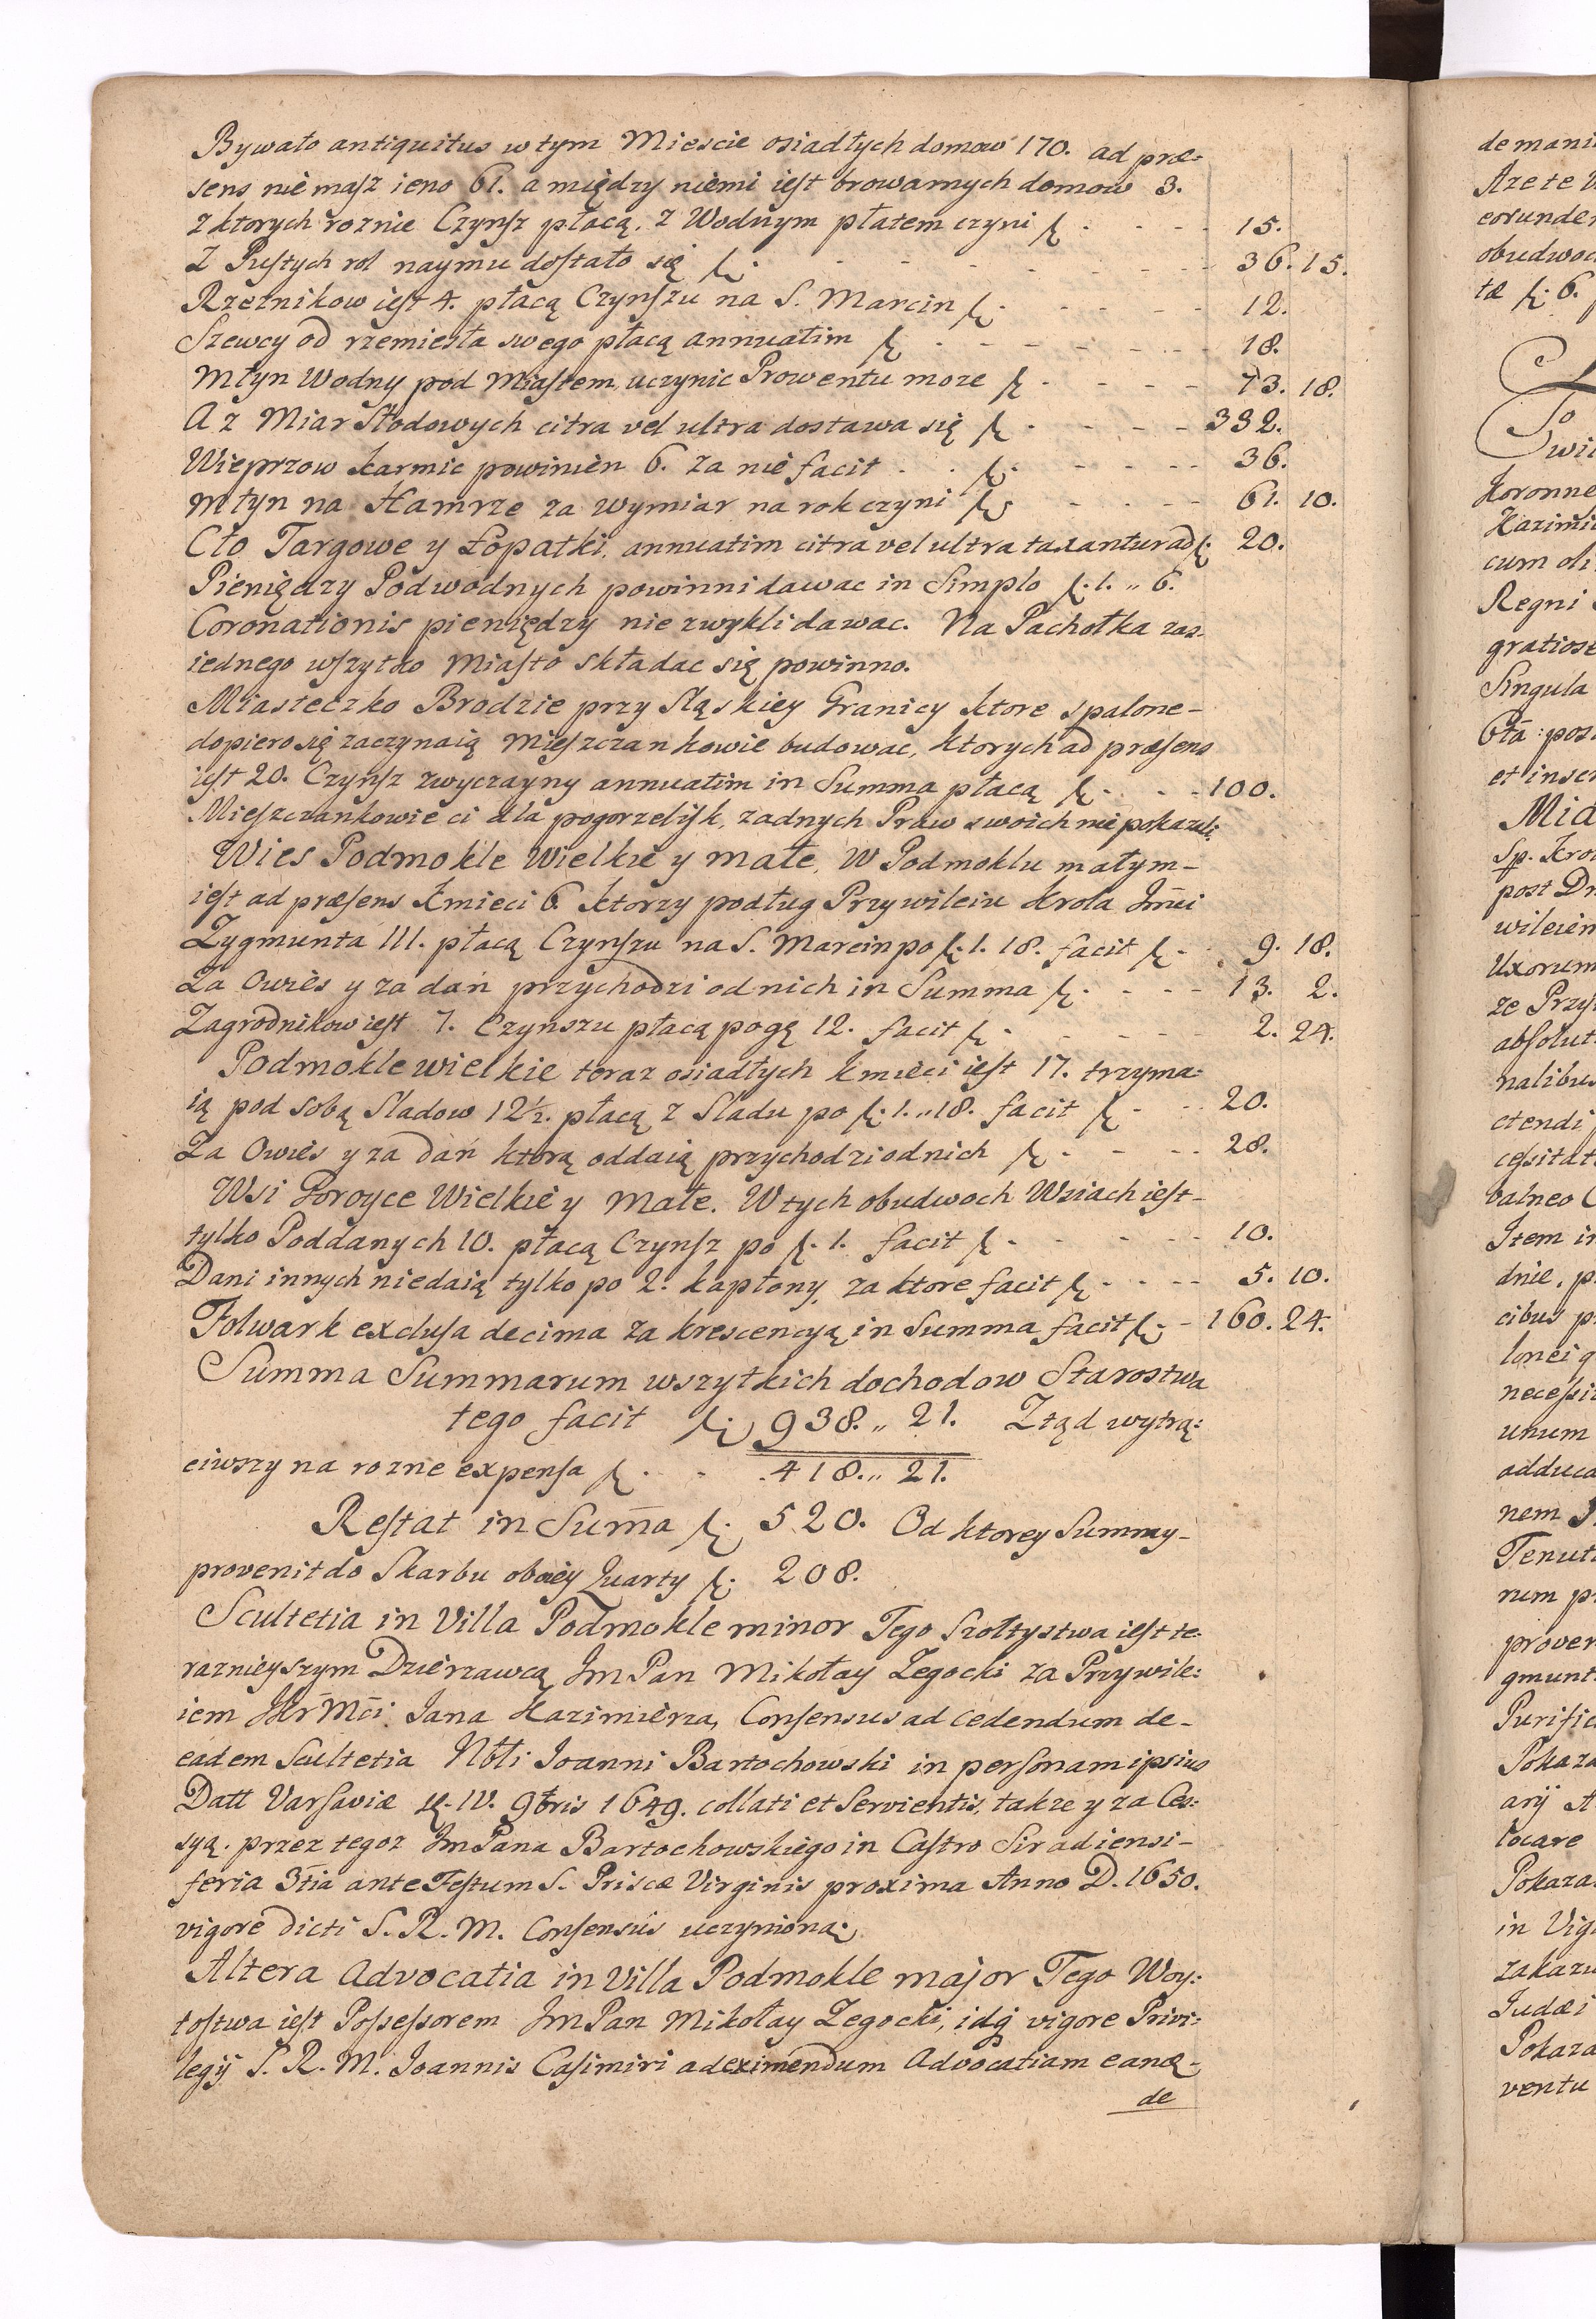 Bywało antiquitus w tym Miescie osiadłych domow 170. ad præ:
sens nie masz ieno 61. a między niemi iest browarnych domow 3.
z ktorych roznie Czynsz płacą. z Wodnym płatem czyni f. - - - 15.
Z Pustych rol naymu dostało się f. - - - 36. 15.
Rzeznikow iest 4. płacą Czynszu na S. Marcin f. - - - 12.
Szewcy od rzemiesła swego płacą annuatim f. - - - 18.
Młyn Wodny pod Miastem, uczynic Prowentu moze f. - - - 73. 18.
A z Miar Słodowych citra vel ultra dostawa się f. - - - 332.
Wieprzow karmic powinien 6. za nie facit - - f. - - - 36.
Młyn na Hamrze za wymiar na rok czyni f. - - - 61. 10.
Cło Targowe y Łopatki, annuatim citra vel ultra taxantur ad f. 20.
Pieniędzy Podwodnych powinni dawac in Simplo f. 1. „ 6.
Coronationis pieniędzy nie zwykli dawac. Na Pachołka zas
iednego wszytko Miasto składac się powinno.
Miasteczko Brodzie przy Sląskiey Granicy ktore spalone -
dopiero się zaczynaią Mieszczankowie budowac, ktorych ad præsens
iest 20. Czynsz zwyczayny annuatim in Summa płacą f. - - - 100.
Mieszczankowie ci dla pogorzelisk, zadnych Praw swoich nie pokazali.
Wies Podmokle Wielkie y Małe, W Podmoklu małym -
iest ad præsens Kmieci 6. ktorzy podług Przywileiu Krola Jmci
Zygmunta III. płacą Czynszu na S. Marcin po f. 1. 18. facit f. - 9. 18.
Za Owies y za dań przychodzi od nich in Summa f. - - - 13. 2.
Zagrodnikow iest 7. Czynszu płacą po gę 12. facit f. - - - 2. 24.
Podmokle wielkie teraz osiadłych kmieci iest 17. trzyma:
ią pod sobą Sladow 12½. płacą z Sladu po f. 1. „ 18. facit f. - - 20.
Za Owies y za dań ktorą oddaią przychodzi od nich f. - - - 28.
Wsi Poroyce Wielkie y Małe. W tych obudwoch Wsiach iest -
tylko Poddanych 10. płacą Czynsz po f. 1. facit f. - - - 10.
Dani innych niedaią tylko po 2. kapłony, za ktore facit f. - - - 5. 10.
Folwark exclusa decima za krescencyą in Summa facit f. - 160. 24.
Summa Summarum wszytkich dochodow Starostwa
tego facit f. 938. „ 21. Ztąd wytrą:
ciwszy na rozne expensa f. - - 418. „ 21.
Restat in Sum̄a f. 520. Od ktorey Summy -
provenit do Skarbu oboiey Quarty f. 208.
Scultetia in Villa Podmokle minor Tego Szołtystwa iest te:
raznieyszym Dzierzawcą Jm Pan Mikołay Zegocki za Przywile:
iem JKr Mci Jana Kazimierza, Consensus ad cedendum de -
eadem Scultetia Nbli Joanni Bartochowski in personam ipsius
Datt Varsaviæ IV. 9bris 1649. collati et Servientis, takze y za Ces:
syą. przez tegoz Jm Pana Bartochowskiego in Castro Siradiensi -
feria 3tia ante Festum S. Priscæ Virginis proxima Anno D. 1650.
vigore dicti S. R. M. Consensus uczynioną.
Altera Advocatia in Villa Podmokle major Tego Woy:
tostwa iest Possessorem Jm Pan Mikołay Zegocki, idq̃ vigore Privi:
legij S. R. M. Joannis Casimiri ad eximendum Advocatiam eand -
de
de mani
Azete
eorunde
obudwoc
tæ f. 6.
wil
Koronne
Kazimi
cum oli
Regni
gratiose
Singula
6ta: post
et inscr
Mia
Sp. Kro
post Dn
wileiem
Uxorum
ze Przy
absolut
nalibus
ctendi
cessitat
balneo
Item in
dnie, p
cibus p
lonei q
necessi
unum
adduca
nem
Tenut
rum p
prover
gmunt
Purific
Pokaza
arij A
locare
Pokaza
in Vig
zakazu
Judæi
Pokaza
ventu